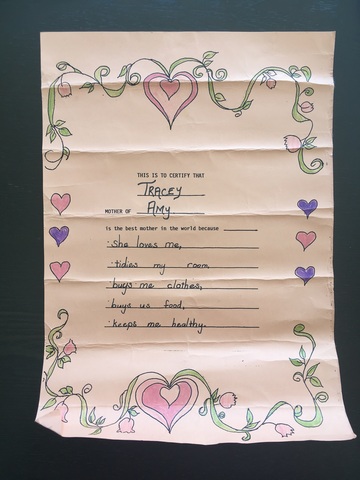 THIS IS TO CERTIFY THAT
TRACEY
MOTHER OF AMY
is the best mother in the world because
she loves me,
tidies my room,
buys me clothes,
buys us food,
keeps me healthy.